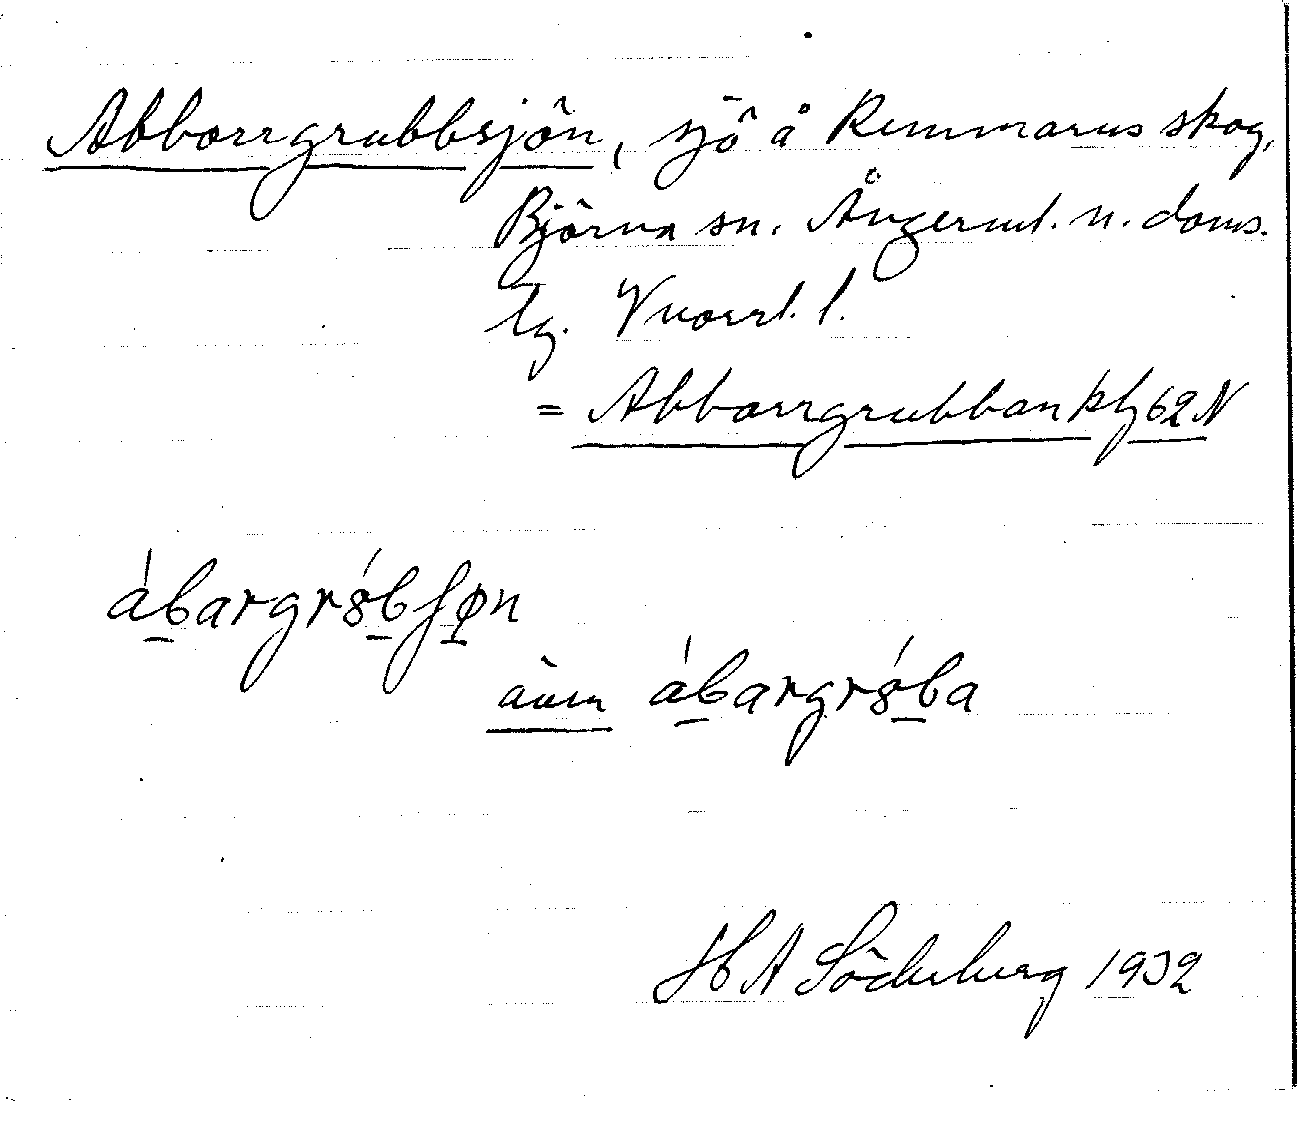 Abborrgrubbsjön, sjö å Remmarns skog,
Björna sn. Ångerml. n. doms.
lg. Vnorrl. l.
= Abborrgrubban kbl 62 N
ábargrȣ́bʃøn
även ábargrȣ́ba
H A Söderberg 1932